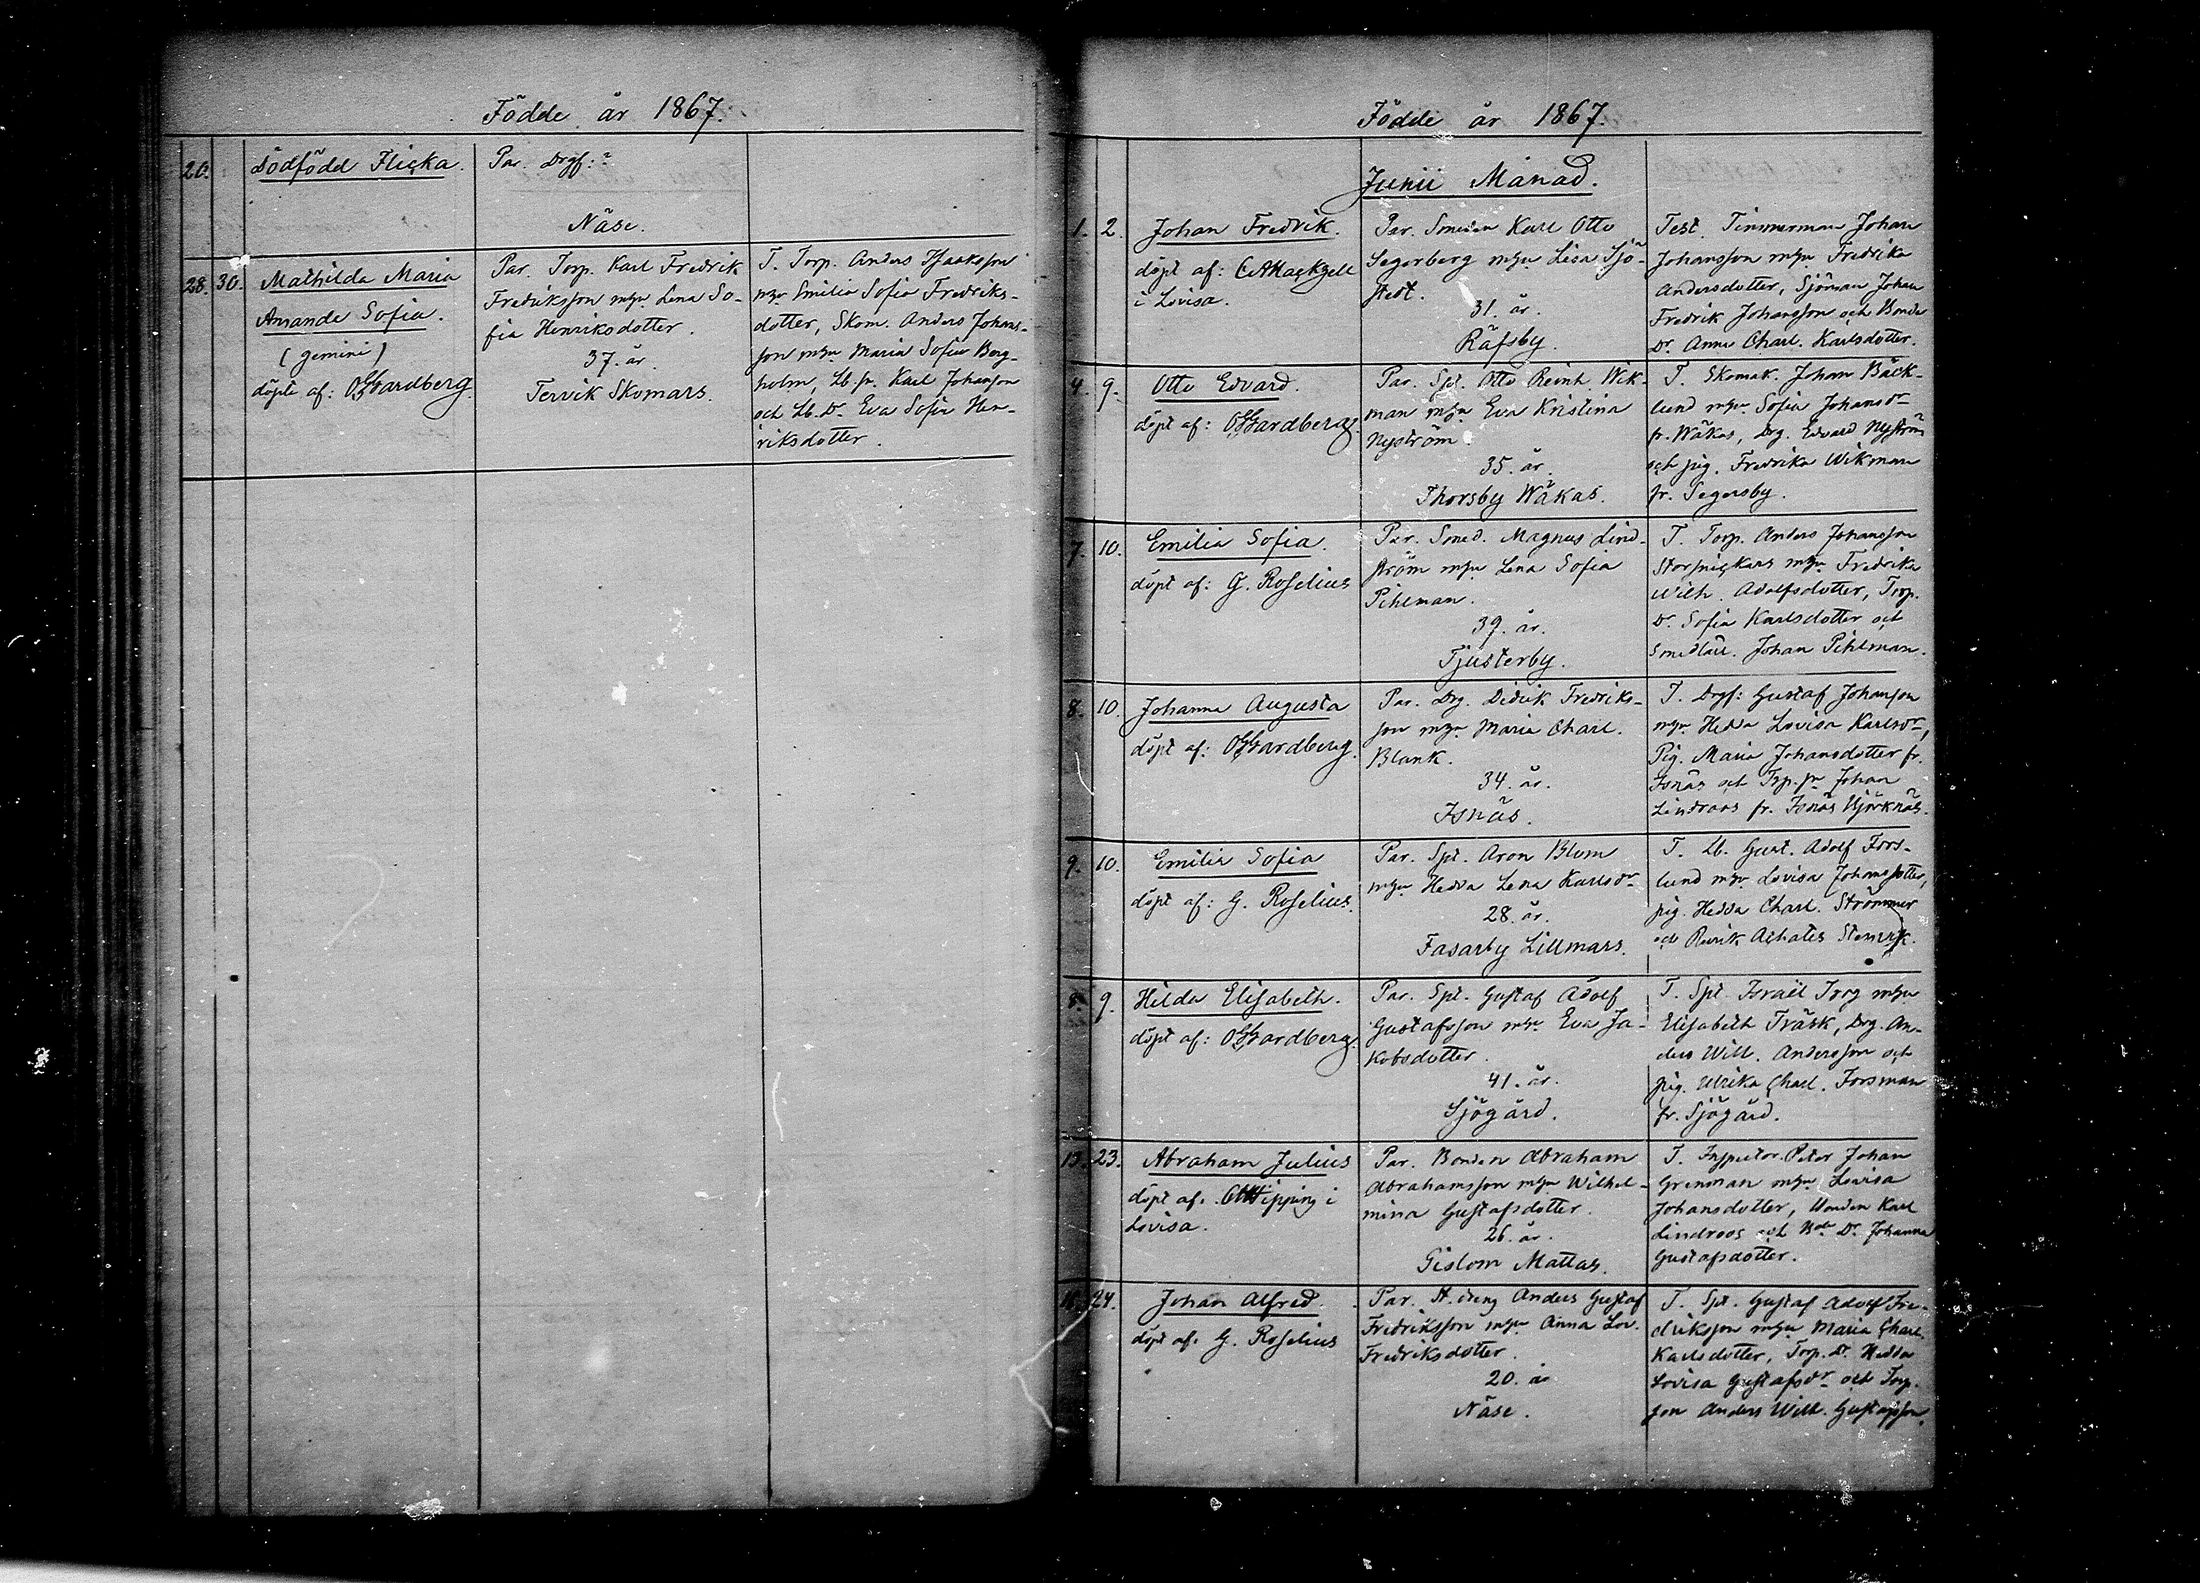 Födde år 1867.
20. Dödfödd Flicka. Par. Drgf: ?
Näse.
28. 30. Mathilda Maria
Amanda Sofia.
(gemini)
döpte af: OGardberg.
Par. Torp. Karl Fredrik
Fredriksson m hu Lena So-
fia Henriksdotter.
37. år.
Tervik Skomars.
T. Torp. Anders Isaksson
m hu Emilia Sofia Fredriks-
dotter, Skom. Anders Johans-
son m hu Maria Sofia Borg-
holm, Lb. Karl Johansson
och Lb. Dr. Eva Sofia Hen-
riksdotter.
Födde år 1867.
Junii Månad.
1. 2. Johan Fredrik.
döpt af:
i Lovisa.
Par. Smeden Karl Otto
Segerberg m hu Lisa Sjö-
stedt.
31. år.
Räfsby.
Test. Timmerman Johan
Johansson m hu Fredrika
Andersdotter, Sjöman Johan
Fredrik Johansson och Bonde
Dr. Anna Charl. Karlsdotter.
4. 9. Otto Edvard.
döpt af: OGardberg.
Par. Spt. Otto Reinh. Wik-
man m hu Eva Kristina
Nyström.
35. år.
Thorsby Wåkas.
T. Skomak. Johan Bäck-
lund m hu Sofia Johansdr
fr. Wåkas, Drg. Edvard Nyström
och pig. Fredrika Wikman
fr. Segersby.
7. 10. Emilia Sofia.
döpt af: G. Roselius
Par. Smed. Magnus Lind-
ström m hu Lena Sofia
Pihlman.
39. år.
Tjusterby.
T. Torp. Anders Johansson
m hu Fredrika
Wilh. Adolfsdotter, Torp.
Dr. Sofia Karlsdotter och
Smedlärl. Johan Pihlman.
8. 10. Johanna Augusta
döpt af: OGardberg.
Par. Drg. Didrik Fredriks-
son m hu Maria Charl.
Blank.
34. år.
Isnäs.
T. Drgf: Gustaf Johansson
m hu Hedda Lovisa Karlsdr,
Pig. Maria Johansdotter fr.
Isnäs och Johan
Lindroos fr. Isnäs Björknäs.
9. 10. Emilia Sofia
döpt af: G. Roselius.
Par. Spt. Aron Blom
m hu Hedda Lena Karlsdr
28. år.
Fasarby Lillmars.
T. Lb. Gust. Adolf Fors-
lund m hu Lovisa Johansdotter,
pig. Hedda Charl. Strömmer
och Achates
8. 9. Hilda Elisabeth.
döpt af: OGardberg.
Par. Spt. Gustaf Adolf
Gustafsson m hu Eva Ja-
kobsdotter.
41. år.
Sjögård.
T. Spt. Israël Torg m hu
Elisabeth Träsk, Drg. An-
ders Wilh. Andersson och
pig. Ulrika Charl. Forsman
fr. Sjögård.
13. 23. Abraham Julius
döpt af. i
Lovisa.
Par. Bonden Abraham
Abrahamsson m hu Wilhel-
mina Gustafsdotter.
26. år.
Gislom Mattas.
T. Inspector. Peter Johan
Grenman m hu Lovisa
Johansdotter, Bonden Karl
Lindroos och Bde Dr. Johanna
Gustafsdotter.
24. Johan Alfred.
döpt af. G. Roselius
Par. Anders Gustaf
Fredriksson m hu Anna Lov.
Fredriksdotter.
20. år
Näse.
T. Spt. Gustaf Adolf Fre-
driksson m hu Maria Charl.
Karlsdotter, Torp. Dr. Hedda
Lovisa Gustafsdr och Torp.
son Anders Wilh. Gustafsson.